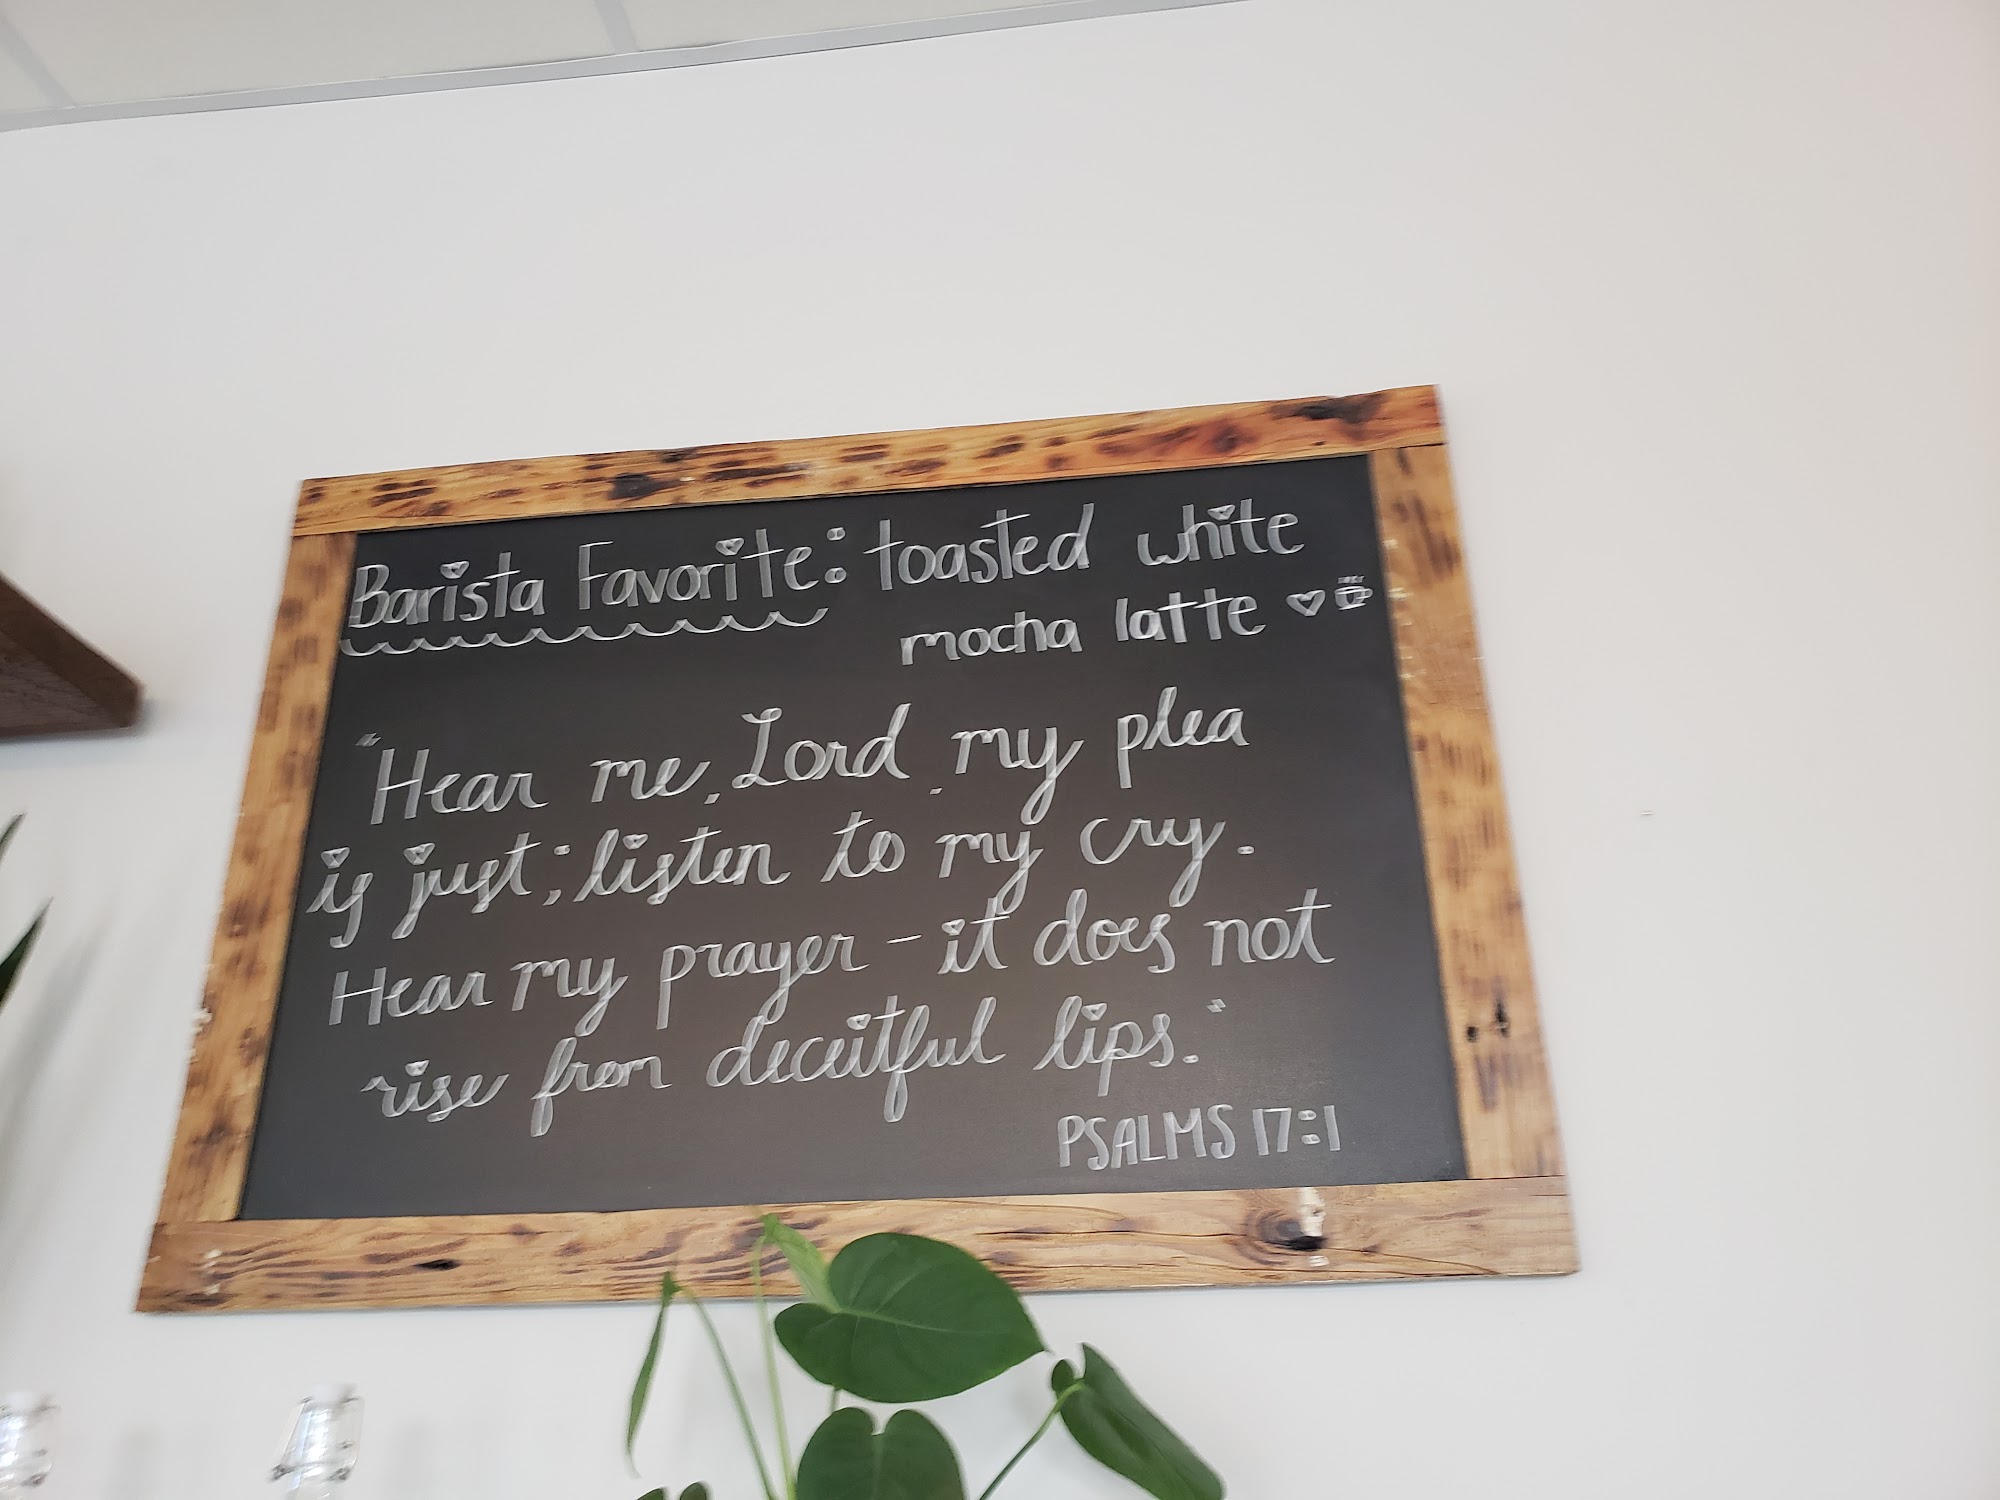 Barista Favorite: toasted white
mocha latte
"Hear me, Lord, my plea
is just; listen to my cry.
Hear my prayer - it does not
rise from deceitful lips."
PSALMS 17:1